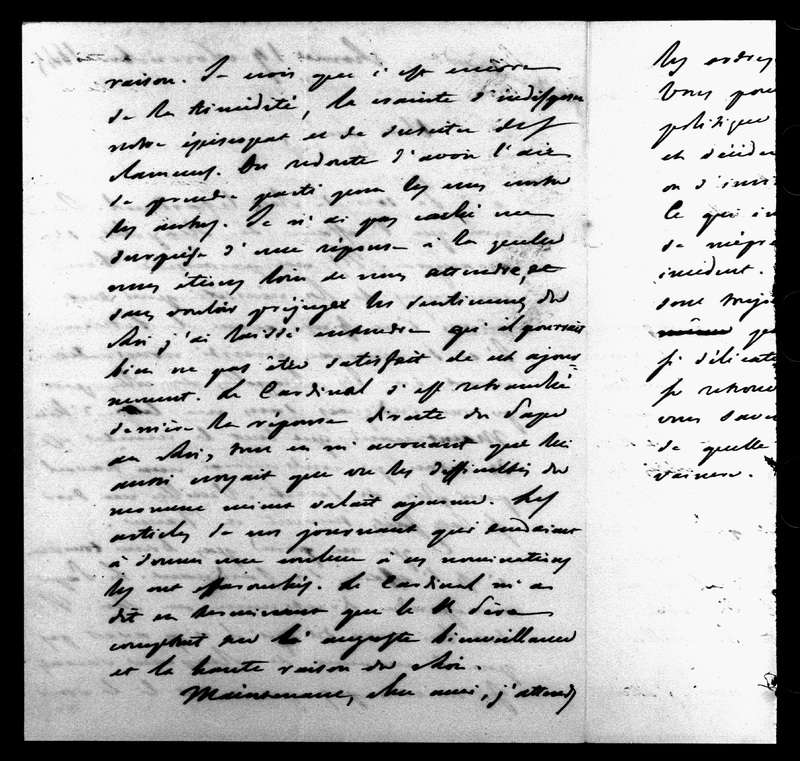 raison. Je crois que c'est encore
de la timidité, la crainte d'indisposer
notre épiscopat et de susciter des
clameurs. On redoute d'avoir l'air
de prendre parti pour les uns contre
les autres. Je n'ai pas caché ma
surprise d'une réponse à la quelle
nous étions loin de nous attendre, et
sans vouloir préjuger les sentimens du
Roi, j'ai laissé entendre qu'il pourrait
bien ne pas être satisfait de cet ajour=
nement. Le Cardinal s'est retranché
derrière la réponse directe du Pape
au Roi, tout en m'avouant que lui
aussi croyait que vu les difficultés du
moment mieux valait ajourner. Les
articles de nos journaux qui tendaient
à donner une couleur à ces nominations
les ont effarouchés. Le Cardinal m'a
dit en terminant que le St Père
comptait sur la auguste bienveillance
et la haute raison du Roi.
Maintenant, cher ami, j'attends
les ordres
Vous pour
politique
et décider
on d'invi
Ce qui in
de
incident.
sont toujo
même
si délicate
se retrouve
vous savez
de quelle
vaincre.